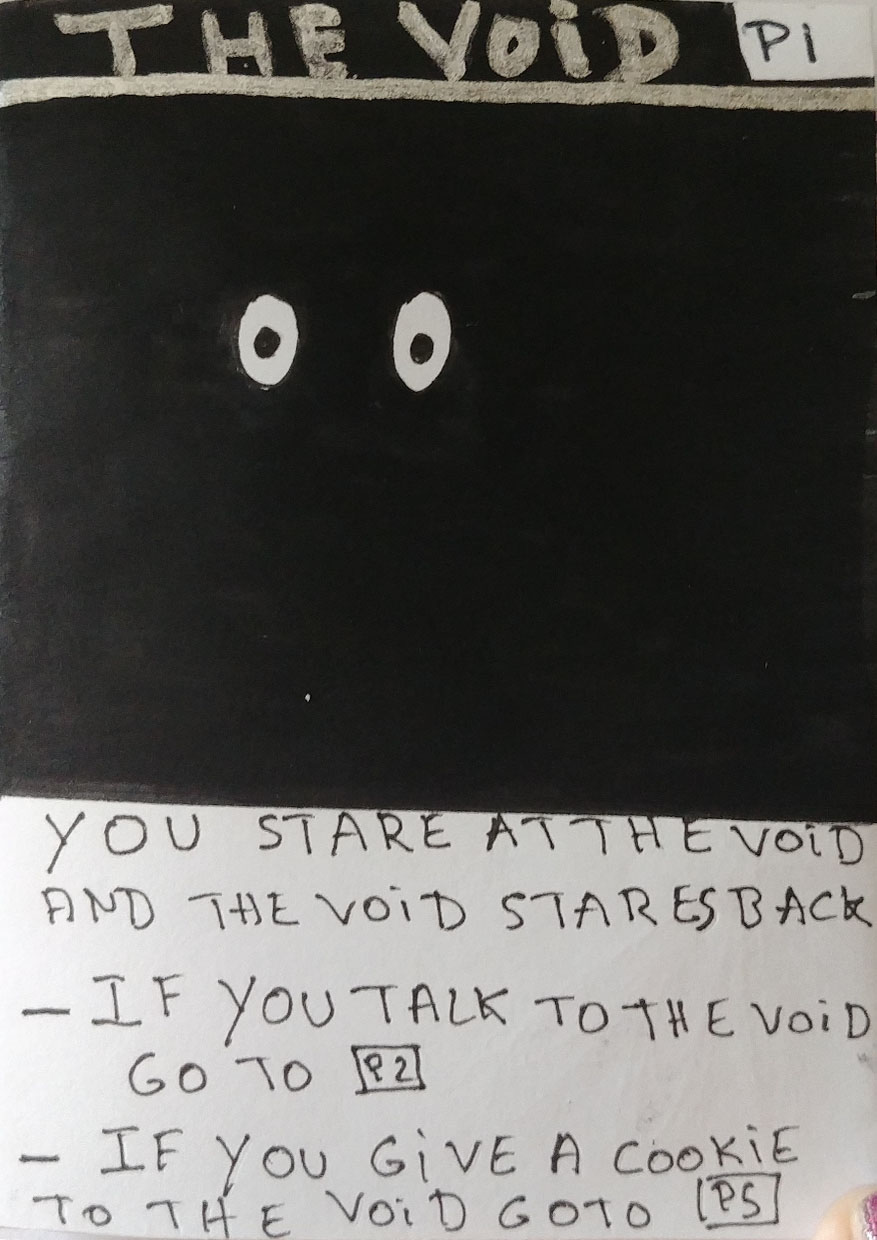 THE VOiD P1
YOU STARE AT THE VOiD
AND THE VOiD STARES BACK
- IF YOU TALK TO THE VOiD
GO TO P2
- IF YOU GiVE A COOKiE
TO THE VOiD GO TO P5